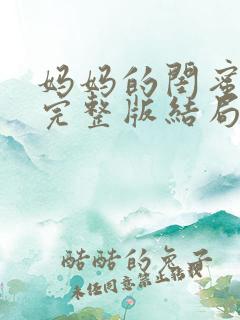 妈妈的闺蜜
完整版结局
酷酷的兔子
未经同意禁止转载